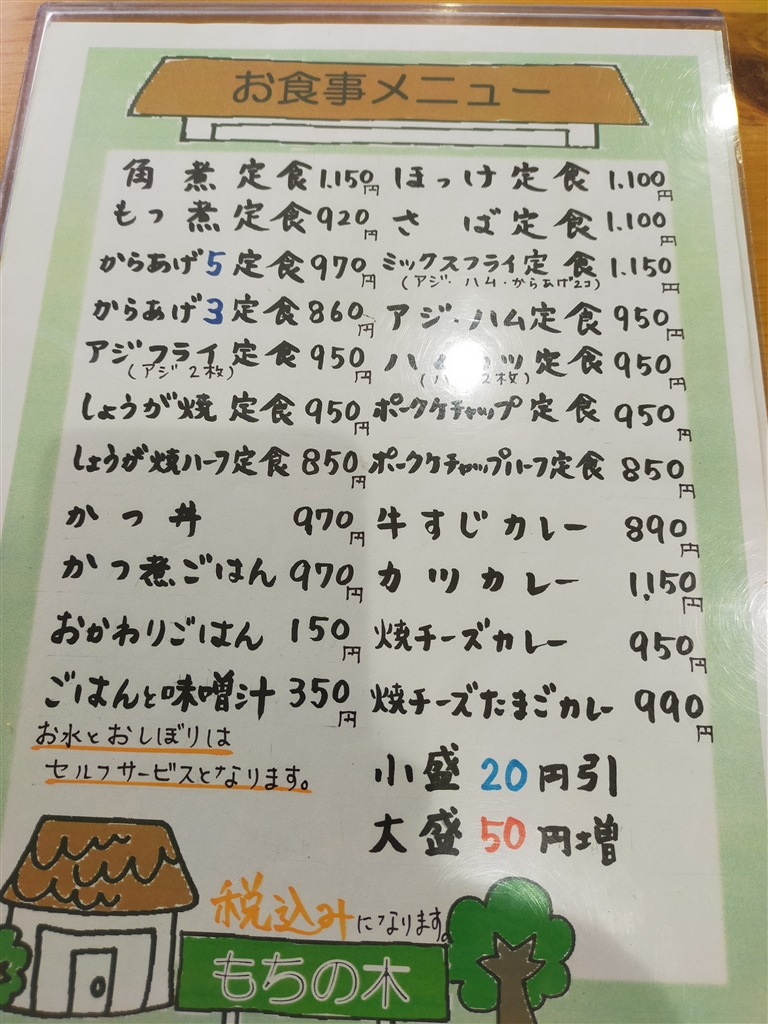 お食事メニュー
角煮定食 1.150円
もつ煮定食 920円
からあげ5定食 970円
からあげ3定食 860円
アジフライ定食 950円
(アジ 2枚)
しょうが焼定食 950円
しょうが焼ハーフ定食 850円
かつ丼 970円
かつ煮ごはん 970円
おかわりごはん 150円
ごはんと味噌汁 350円
お水とおしぼりは
セルフサービスとなります。
ほっけ定食 1.100円
さば定食 1.100円
ミックスフライ定食 1.150円
(アジ・ハム・からあげ2コ)
アジ・ハム定食 950円
ハムカツ定食 950円
2枚)
ポークケチャップ定食 950円
ポークケチャップハーフ定食 850円
牛すじカレー 890円
カツカレー 1.150円
焼チーズカレー 950円
焼チーズたまごカレー 990円
小盛 20円引
大盛 50円増
税込みになります。
もちの木